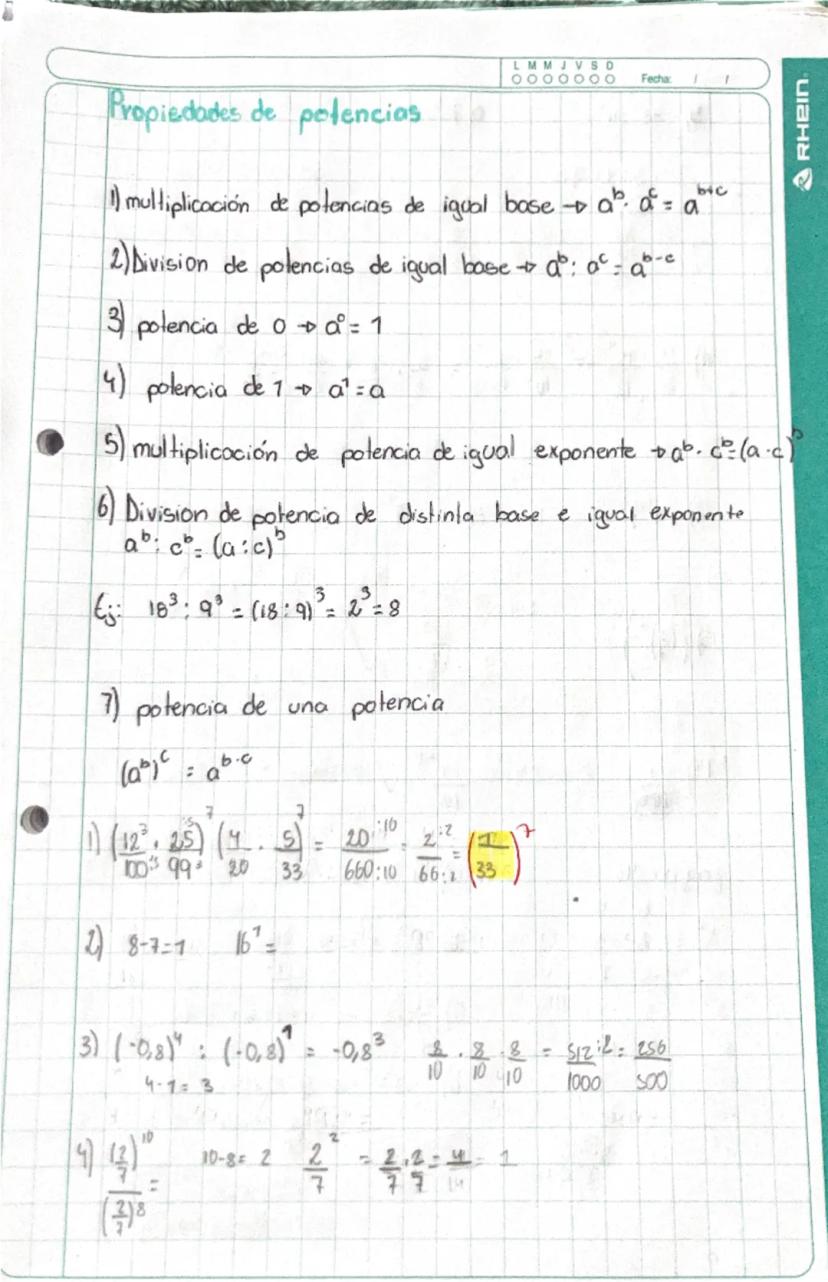 L M M J V S D
Fecha: / /
RHEIN
Propiedades de potencias
1) multiplicación de potencias de igual base → a^b · a^c = a^(b+c)
2) Division de potencias de igual base → a^b : a^c = a^(b-c)
3) potencia de 0 → a^0 = 1
4) potencia de 1 → a^1 = a
5) multiplicación de potencia de igual exponente → a^b · c^b = (a · c)^b
6) Division de potencia de distinta base e igual exponente
a^b : c^b = (a : c)^b
Ej: 18^3 : 9^3 = (18 : 9)^3 = 2^3 = 8
7) potencia de una potencia
(a^b)^c = a^(b·c)
1) (12/100 · 25/99)^7 (4/20 · 5/33)^7 = 20:10/660:10 = 2:2/66:2 = (1/33)^7
2) 8-7=1 16^1 =
3) (-0,8)^4 : (-0,8)^1 = -0,8^3 8/10 · 8/10 · 8/10 = 512:2/1000 = 256/500
4-1= 3
4) (2/7)^10/(2/7)^8 = 10-8= 2 2^2/7 = 2/7 · 2/7 = 4/14 = 1